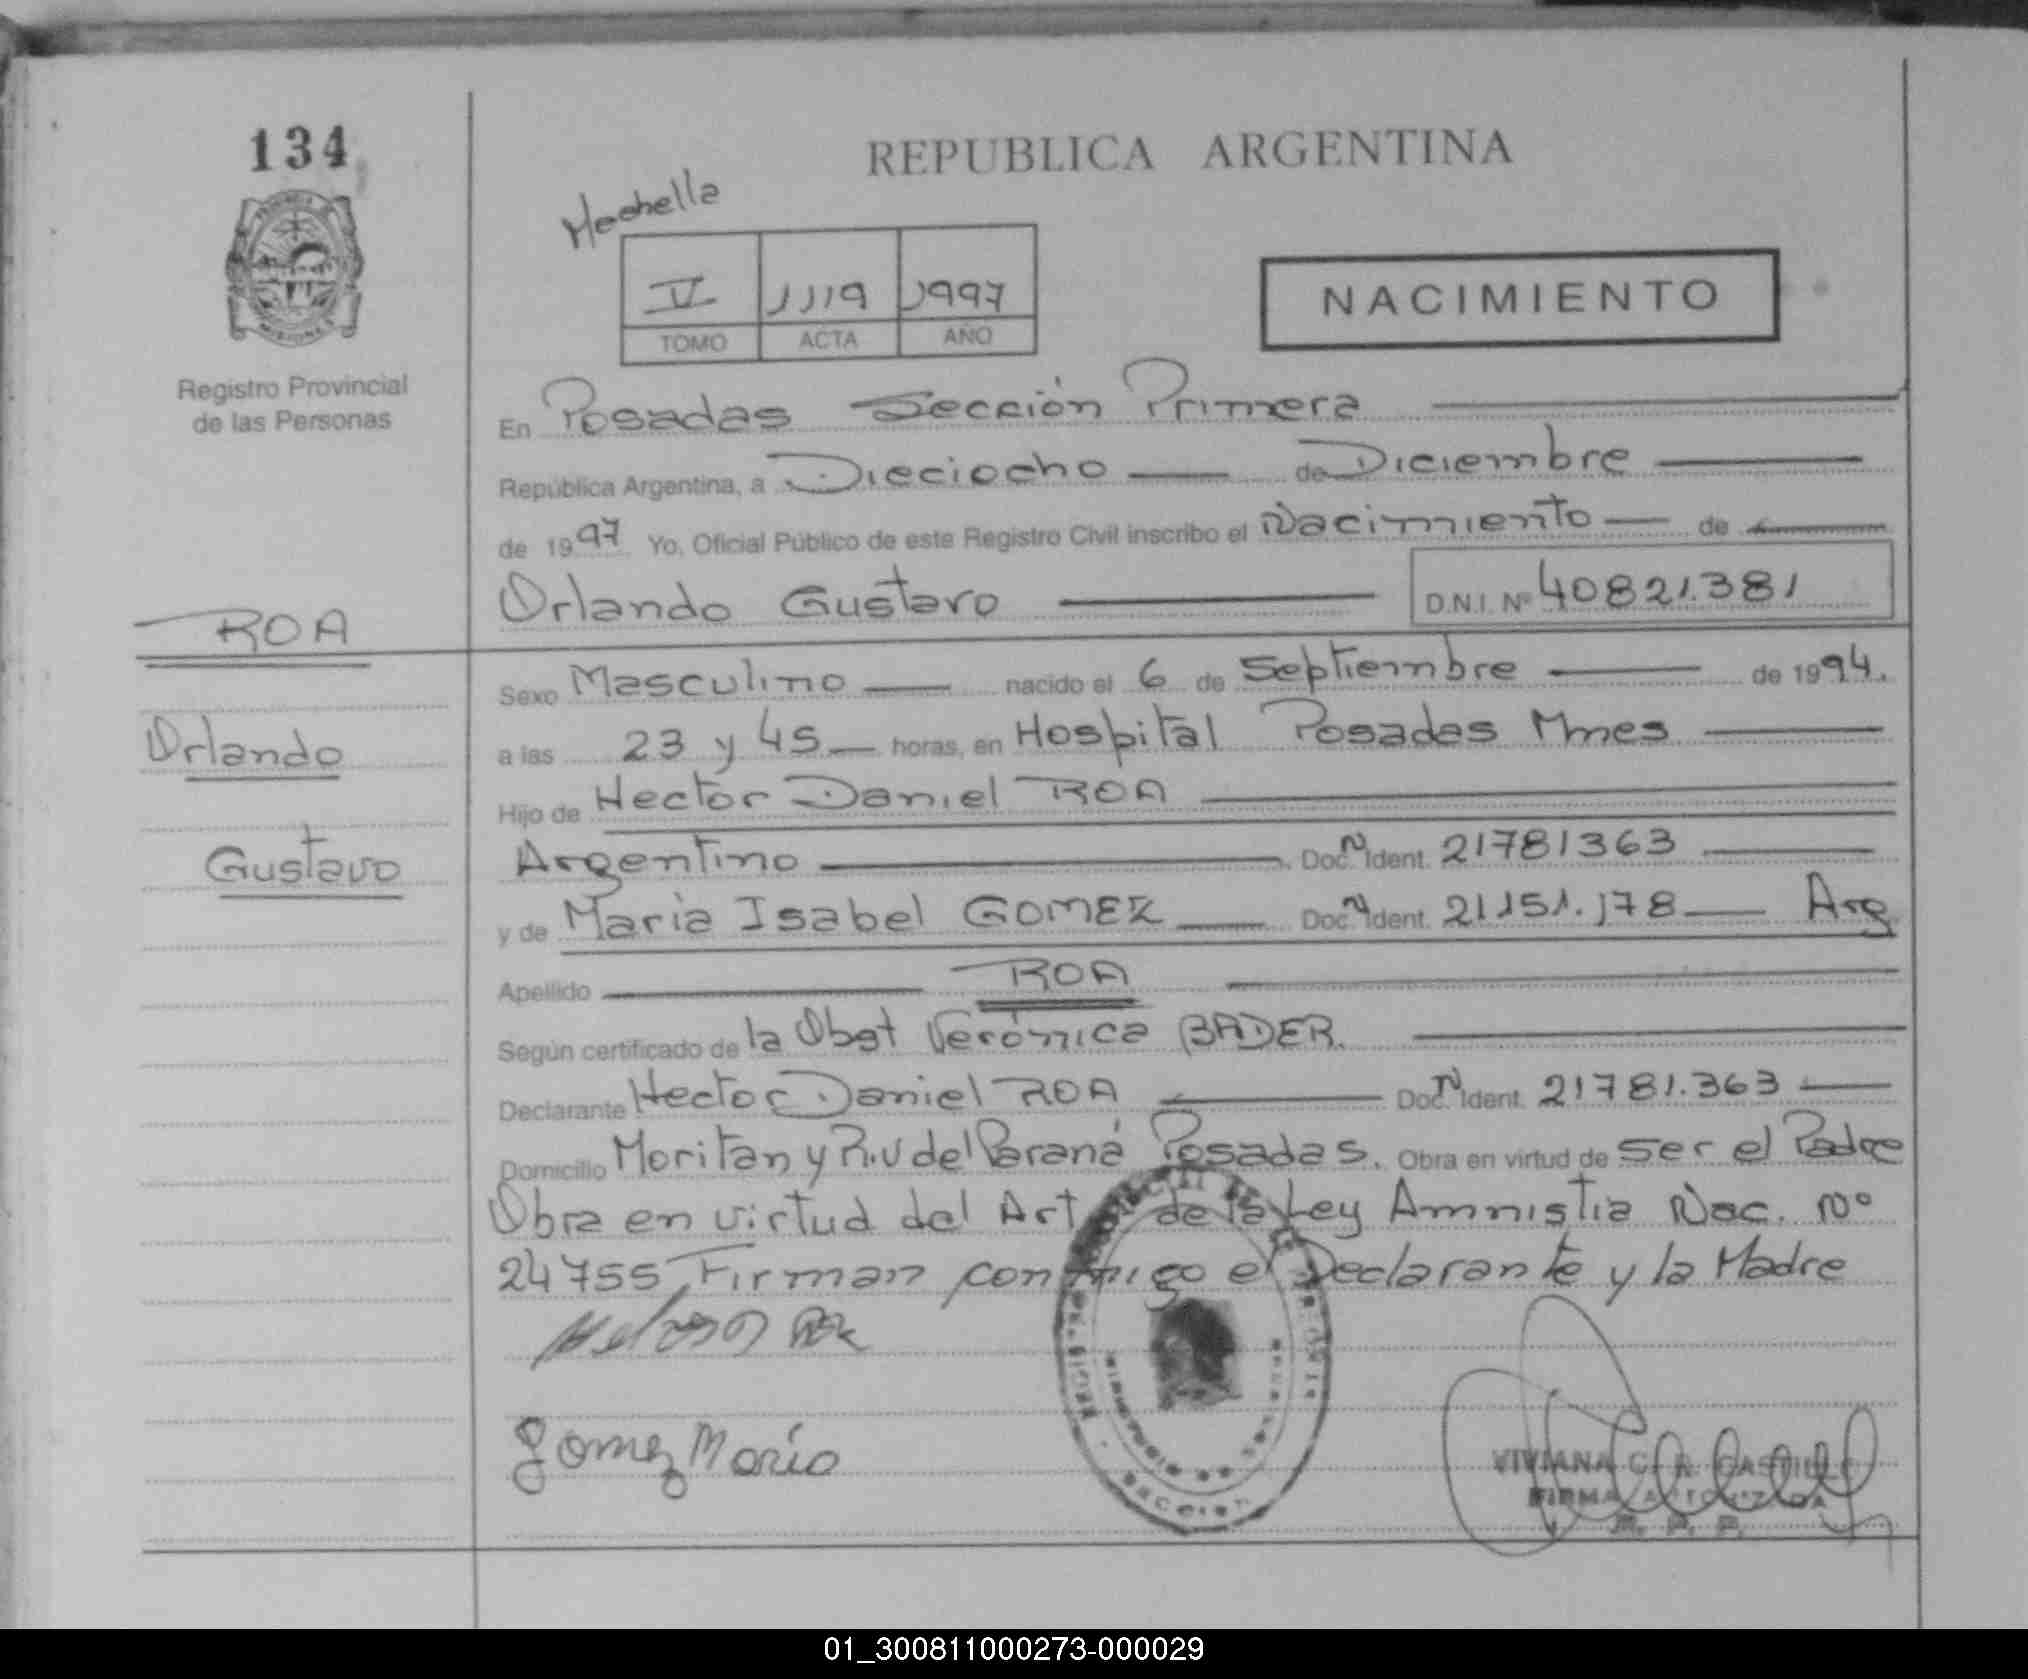 134
REPUBLICA ARGENTINA
V 1119 1997
TOMO ACTA AÑO
NACIMIENTO
Registro Provincial
de las Personas
En Posadas Sección Primera
República Argentina, a Dieciocho de Diciembre
de 1997 Yo, Oficial Público de este Registro Civil inscribo el Nacimiento de
Orlando Gustavo D.N.I. Nº 40821.381
ROA
Orlando
Gustavo
Sexo Masculino nacido el 6 de Septiembre de 1994.
a las 23 y 45 horas, en Hospital Posadas Mnes
Hijo de Hector Daniel ROA
Argentino Doc. N Ident. 21781363
y de Maria Isabel GOMEZ Doc. N Ident. 21151.178 Arg
Apellido ROA
Según certificado de la Obst Verónica BADER.
Declarante Hector Daniel ROA Doc. N Ident. 21781.363
Domicilio Moritan y R.U del Paraná Posadas. Obra en virtud de ser el Padre
Obra en virtud del Art de la Ley Amnistia Nac. Nº
24755 Firman conmigo el Declarante y la Madre
Gomez Maria
VIVIANA C. R. CASTILLO
FIRMA AUTORIZADA
R. P. P.
01_300811000273-000029